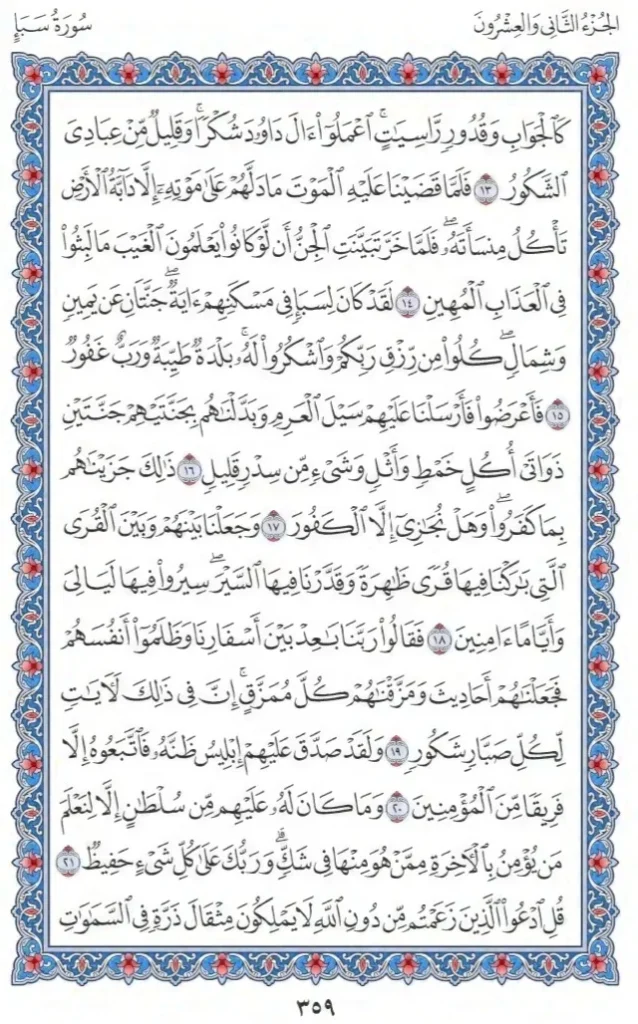 الجُزْءُ الثَّانِي وَالعِشْرُونَ سُورَةُ سَبَإٍ
كَٱلْجَوَابِ وَقُدُورٍ رَّاسِيَـٰتٍۚ ٱعْمَلُوٓا۟ ءَالَ دَاوُۥدَ شُكْرًاۚ وَقَلِيلٌ مِّنْ عِبَادِىَ
ٱلشَّكُورُ ١٣ فَلَمَّا قَضَيْنَا عَلَيْهِ ٱلْمَوْتَ مَا دَلَّهُمْ عَلَىٰ مَوْتِهِۦٓ إِلَّا دَآبَّةُ ٱلْأَرْضِ
تَأْكُلُ مِنسَأَتَهُۥۖ فَلَمَّا خَرَّ تَبَيَّنَتِ ٱلْجِنُّ أَن لَّوْ كَانُوا۟ يَعْلَمُونَ ٱلْغَيْبَ مَا لَبِثُوا۟
فِى ٱلْعَذَابِ ٱلْمُهِينِ ١٤ لَقَدْ كَانَ لِسَبَإٍ فِى مَسْكَنِهِمْ ءَايَةٌۖ جَنَّتَانِ عَن يَمِينٍ
وَشِمَالٍۖ كُلُوا۟ مِن رِّزْقِ رَبِّكُمْ وَٱشْكُرُوا۟ لَهُۥۚ بَلْدَةٌ طَيِّبَةٌ وَرَبٌّ غَفُورٌ
١٥ فَأَعْرَضُوا۟ فَأَرْسَلْنَا عَلَيْهِمْ سَيْلَ ٱلْعَرِمِ وَبَدَّلْنَـٰهُم بِجَنَّتَيْهِمْ جَنَّتَيْنِ
ذَوَاتَىْ أُكُلٍ خَمْطٍ وَأَثْلٍ وَشَىْءٍ مِّن سِدْرٍ قَلِيلٍ ١٦ ذَٰلِكَ جَزَيْنَـٰهُم
بِمَا كَفَرُوا۟ۖ وَهَلْ نُجَـٰزِىٓ إِلَّا ٱلْكَفُورَ ١٧ وَجَعَلْنَا بَيْنَهُمْ وَبَيْنَ ٱلْقُرَى
ٱلَّتِى بَـٰرَكْنَا فِيهَا قُرًى ظَـٰهِرَةً وَقَدَّرْنَا فِيهَا ٱلسَّيْرَۖ سِيرُوا۟ فِيهَا لَيَالِىَ
وَأَيَّامًا ءَامِنِينَ ١٨ فَقَالُوا۟ رَبَّنَا بَـٰعِدْ بَيْنَ أَسْفَارِنَا وَظَلَمُوٓا۟ أَنفُسَهُمْ
فَجَعَلْنَـٰهُمْ أَحَادِيثَ وَمَزَّقْنَـٰهُمْ كُلَّ مُمَزَّقٍۚ إِنَّ فِى ذَٰلِكَ لَـَٔايَـٰتٍ
لِّكُلِّ صَبَّارٍ شَكُورٍ ١٩ وَلَقَدْ صَدَّقَ عَلَيْهِمْ إِبْلِيسُ ظَنَّهُۥ فَٱتَّبَعُوهُ إِلَّا
فَرِيقًا مِّنَ ٱلْمُؤْمِنِينَ ٢٠ وَمَا كَانَ لَهُۥ عَلَيْهِم مِّن سُلْطَـٰنٍ إِلَّا لِنَعْلَمَ
مَن يُؤْمِنُ بِٱلْـَٔاخِرَةِ مِمَّنْ هُوَ مِنْهَا فِى شَكٍّۗ وَرَبُّكَ عَلَىٰ كُلِّ شَىْءٍ حَفِيظٌ ٢١
قُلِ ٱدْعُوا۟ ٱلَّذِينَ زَعَمْتُم مِّن دُونِ ٱللَّهِ لَا يَمْلِكُونَ مِثْقَالَ ذَرَّةٍ فِى ٱلسَّمَـٰوَٰتِ
٣٥٩